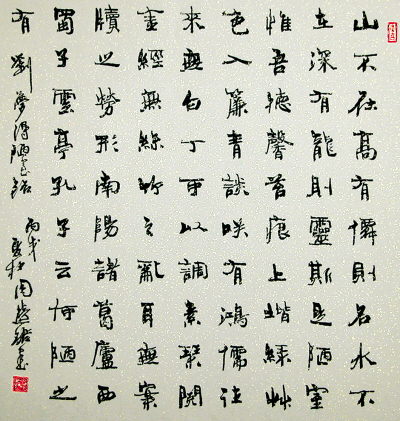 山不在高有僊則名水不
在深有龍則靈斯是陋室
惟吾德馨苔痕上堦綠艸
色入簾青談咲有鴻儒往
來無白丁可以調素琴閱
金經無絲竹之亂耳無案
牘之勞形南陽諸葛廬西
蜀子雲亭孔子云何陋之
有 劉夢得陋室銘
丙戌